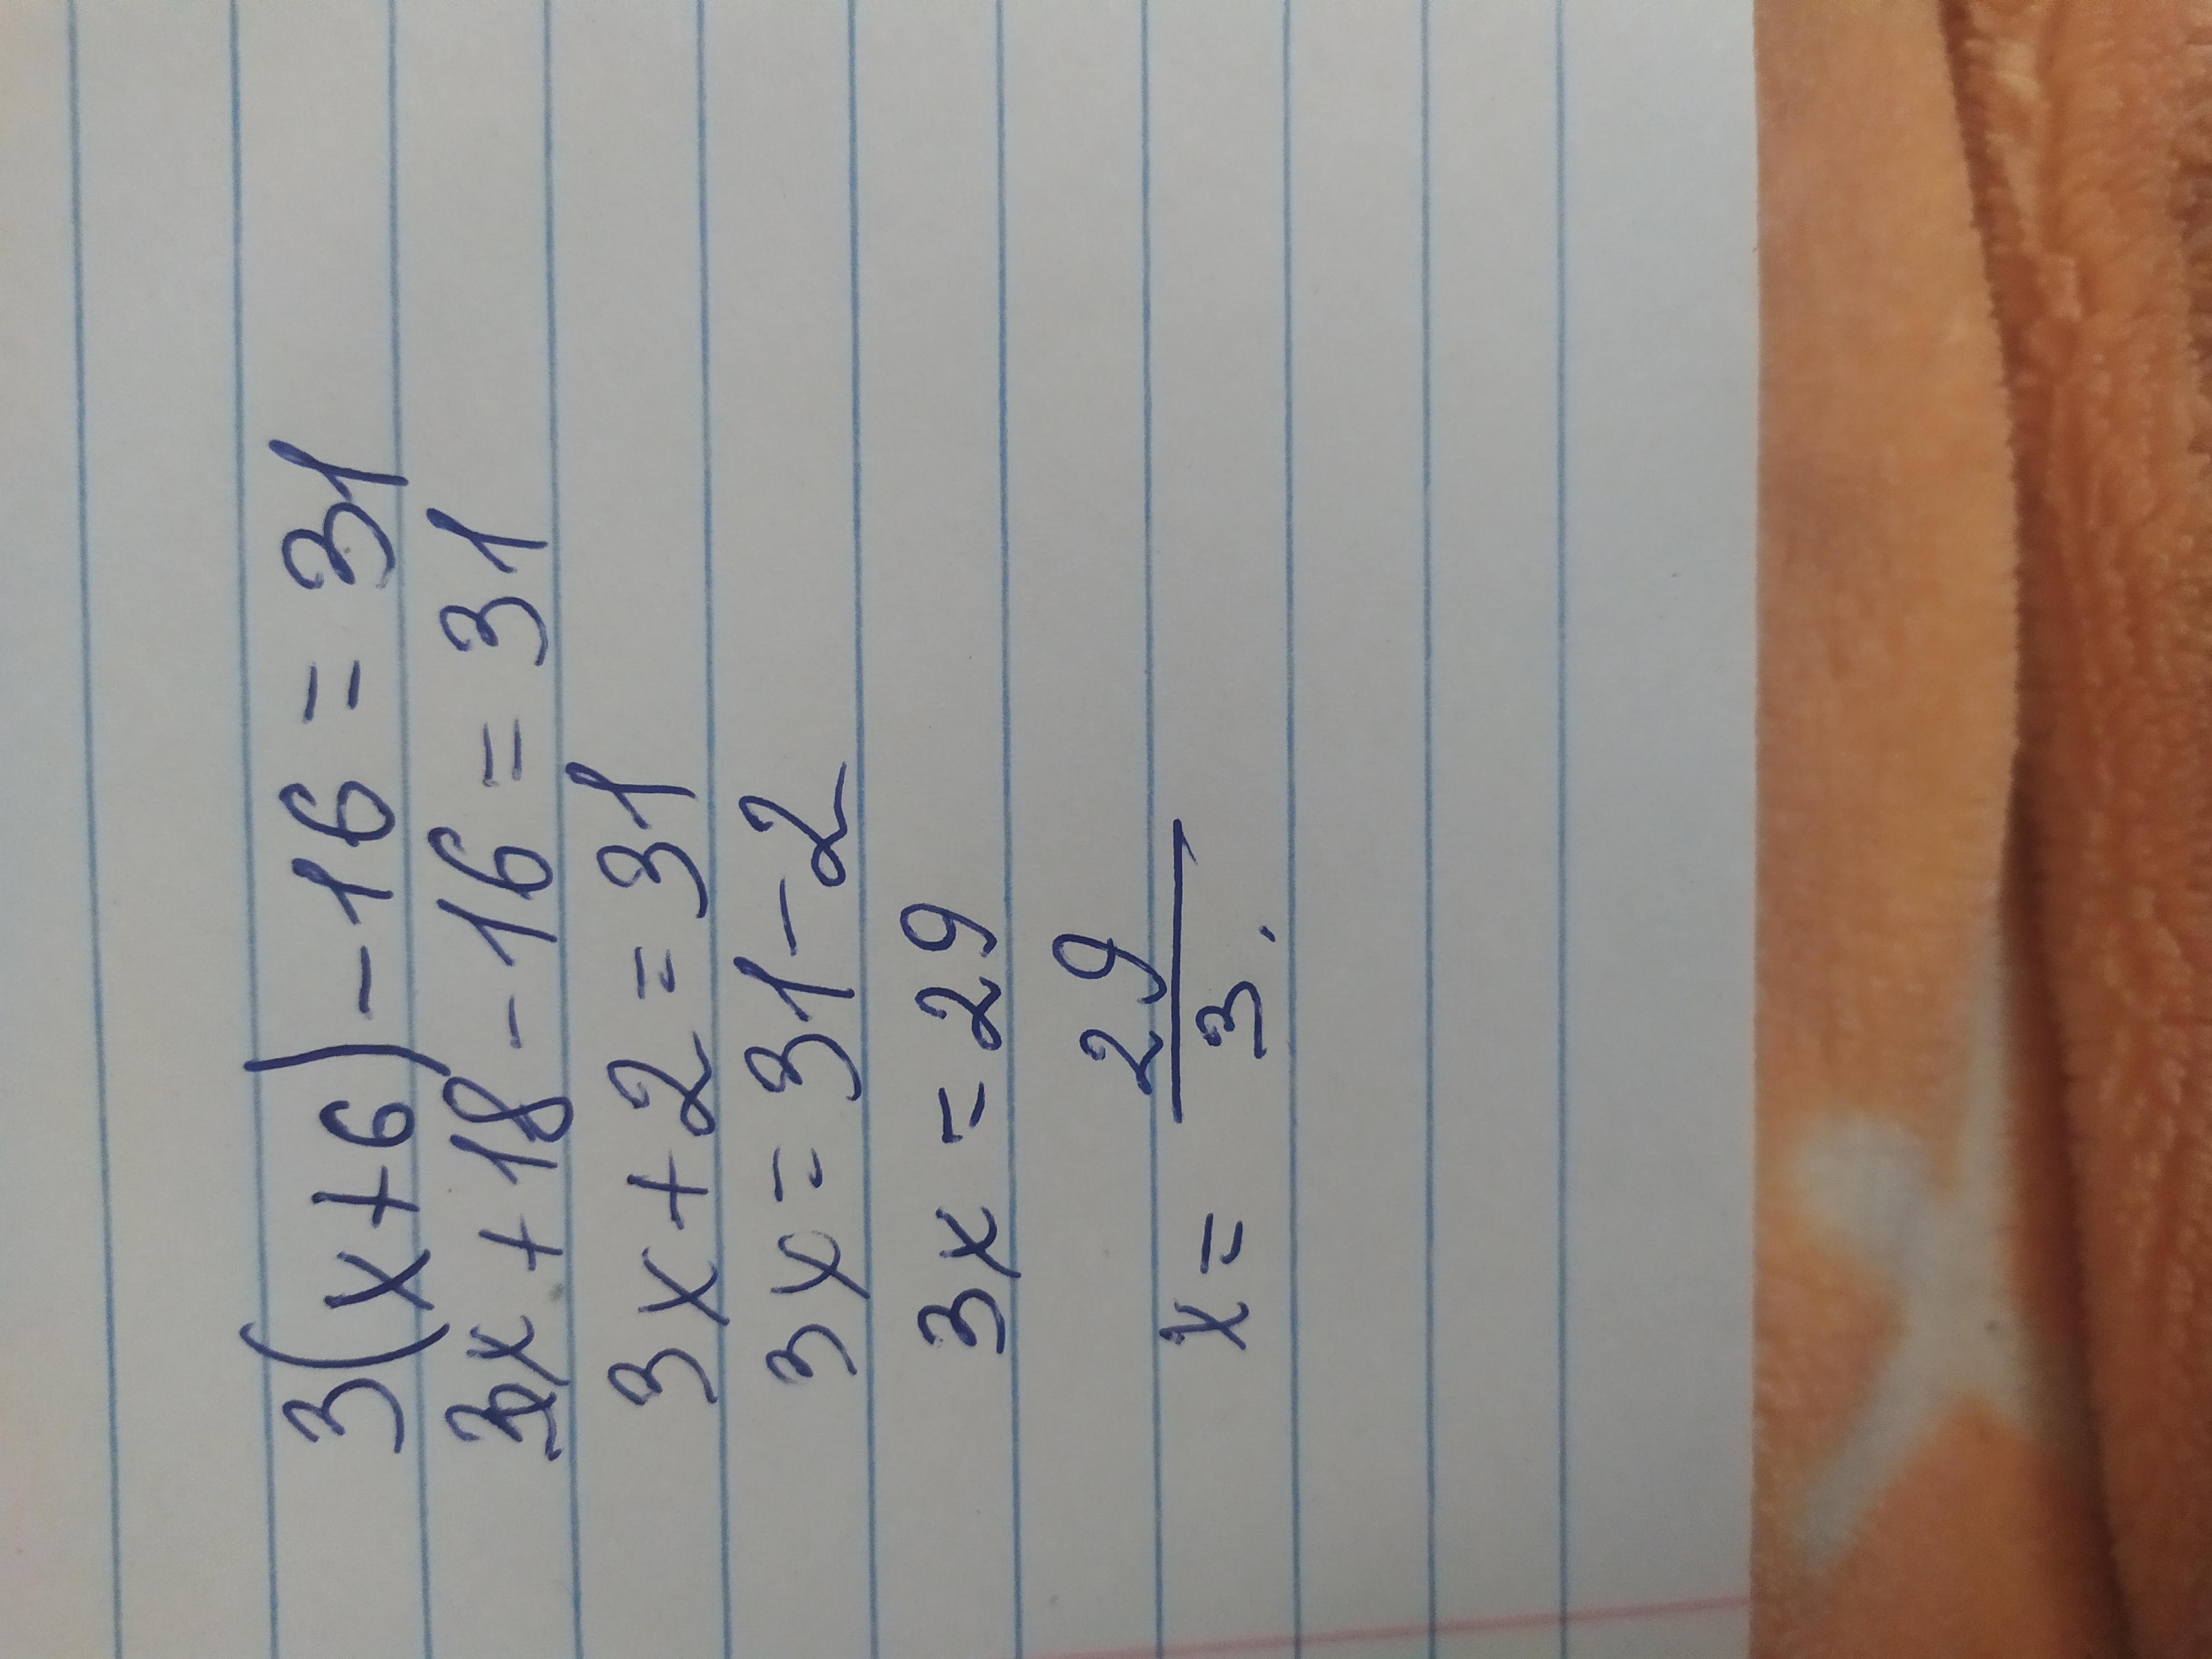 3(x+6)-16=31
3x+18-16=31
3x+2=31
3x=31-2
3x=29
x=29/3.